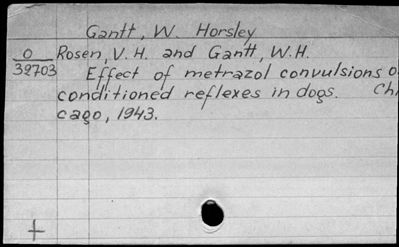 Gantt, W. Horsley
O Rosen, V. H. and Gantt, W.H.
39703 Effect of metrazol convulsions o
conditioned reflexes in dogs. Chi
cago, 1943.
+